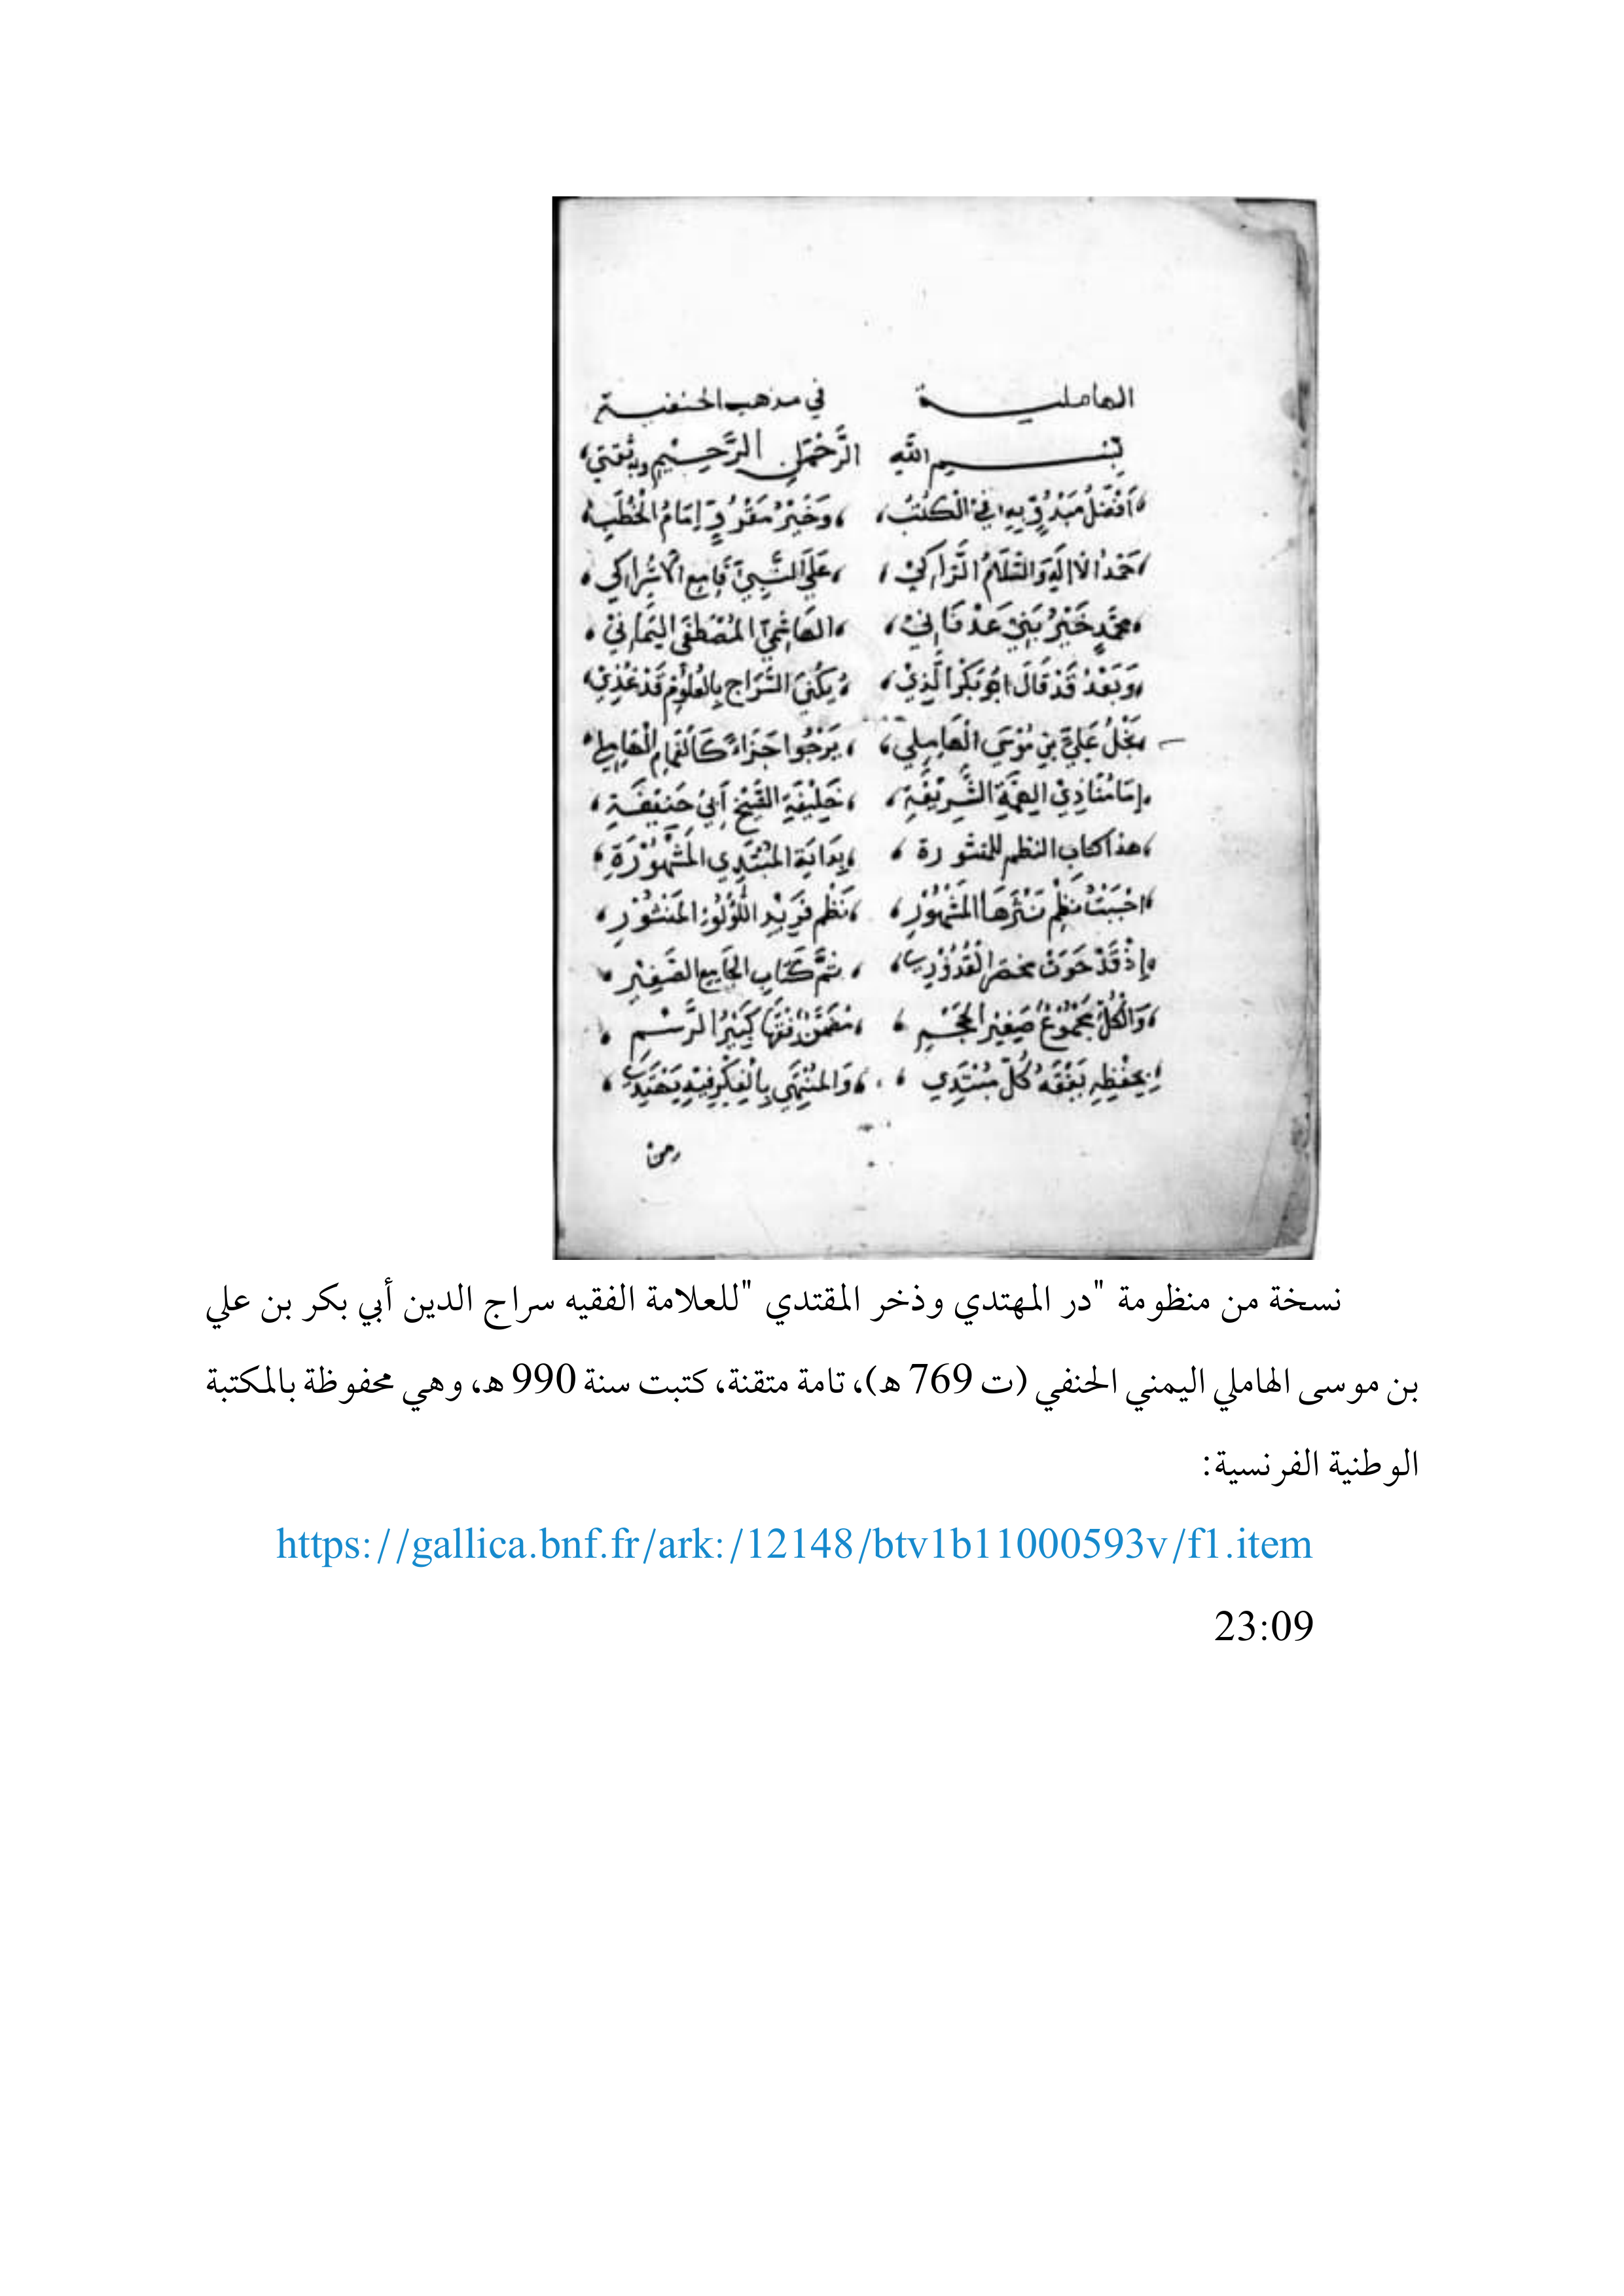 الهاملية في مذهب الحنفية
بسم الله الرحمن الرحيم وبه ثقتي
أَفْضَلُ مَبْدُوٍّ بِهِ فِي الْكُتُبِ، وَخَيْرُ مَقْرُوٍّ إِمَامُ الْخُطَبِ
حَمْدُ الْإِلَهِ وَالسَّلَامُ الزَّاكِي، عَلَى النَّبِيِّ قَامِعِ الْإِشْرَاكِ
مُحَمَّدٍ خَيْرِ بَنِي عَدْنَانِ، الهَاشِمِيِّ المُصْطَفَى اليَمَانِيْ
وَبَعْدُ قَدْ قَالَ ابُو بَكْرِ الَّذِيْ، يُكْنَى السِّرَاجَ بِالْعُلُوْمِ قَدْ غُذِيْ
نَجْلُ عَلِيِّ بْنِ مُوْسَى الْهَامِلِي، يَرْجُوا جَزَاءً كَالْغَمَامِ الْهَامِلِ
إِمَامُنَا ذِيْ الهِمَّةِ الشَّرِيْفَةِ، خَلِيْفَةِ الشَّيْخِ أَبِيْ حَنِيْفَةِ
هذا كتاب النظم للمنثورة، بِدَايَةِ المُبْتَدِي المَشْهُوْرَةِ
احْبَبْتُ نَظْمَ نَثْرِهَا المَشْهُوْرِ، نَظْمَ فَرِيْدِ اللُّؤْلُؤِ المَنْثُوْرِ
إِذْ قَدْ حَوَتْ مختصر الْقُدُوْرِي، ثُمَّ كِتَابِ الجَامِعِ الصَّغِيْرِ
وَالْكُلُّ مَجْمُوْعٌ صَغِيْرُ الحَجْمِ، كَبِيْرُ الرَّسْمِ
بِحِفْظِهِ يَفْقَهُ كُلُّ مُبْتَدِي، وَالمُنْتَهِي بِالْفِكْرِ فِيْهِ يَهْتَدِي
من
نسخة من منظومة "در المهتدي وذخر المقتدي "للعلامة الفقيه سراج الدين أبي بكر بن علي
بن موسى الهاملي اليمني الحنفي (ت 769 هـ)، تامة متقنة، كتبت سنة 990 هـ، وهي محفوظة بالمكتبة
الوطنية الفرنسية:
https://gallica.bnf.fr/ark:/12148/btv1b11000593v/f1.item
23:09